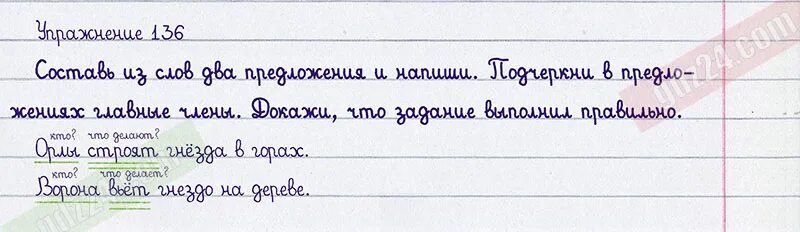 Упражнение 136
Составь из слов два предложения и напиши. Подчеркни в предло-
жениях главные члены. Докажи, что задание выполнил правильно.
кто? что делают?
Орлы строят гнёзда в горах.
кто? что делает?
Ворона вьёт гнездо на дереве.
gdz24.com
gdz24.com